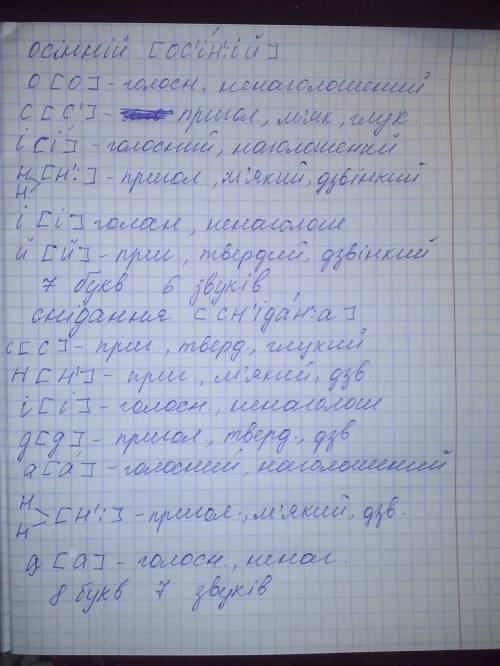 осінній [ос'íн':ій]
о [о] - голосн, ненаголошений
с [с'] - пригол, м'як, глух.
і [í] - голосний, наголошений
н
н [н':] - пригол, м'який, дзвінкий
і [і] голосн, ненаголош
й [й] - приг, твердий, дзвінкий
7 букв 6 звуків
снідання [сн'ідáн':а]
с [с] - приг, тверд., глухий
н [н'] - приг, м'який, дзв.
і [і] - голосн, ненаголош
д [д] - пригол, тверд., дзв.
а [á] - голосний, наголошений
н
н [н':] - пригол., м'який, дзв.
я [а] - голосн, ненаг.
8 букв 7 звуків